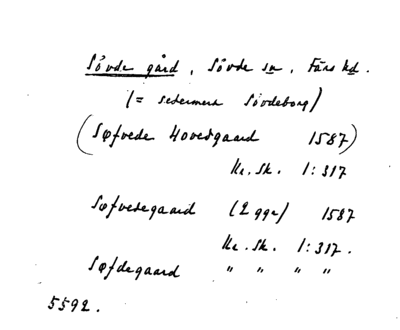 Sövde gård, Sövde sn, Färs hd.
(= sedermera Sövdeborg)
(Søfvede Hovedgaard 1587)
Kr. Sk. 1:317
Søfvedegaard (2 ggr) 1587
Kr. Sk. 1:317.
Søfdegaard " " " "
5592.